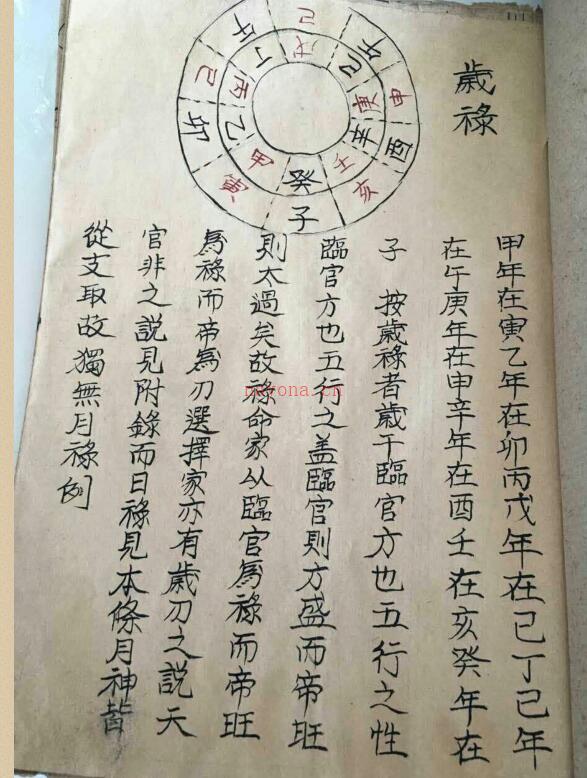 歲祿
己午申酉亥子寅卯己午
戊己庚辛壬癸甲乙丙丁
甲年在寅乙年在卯丙戊年在己丁己年
在午庚年在申辛年在酉壬在亥癸年在
子 按歲祿者歲干臨官方也五行之性
臨官方也五行之盖臨官則方盛而帝旺
則太過矣故祿命家以臨官為祿而帝旺
為祿而帝為刃選擇家亦有歲刃之說天
官非之說見附錄而日祿見本條月神皆
從支取故獨無月祿例
nayona.cn